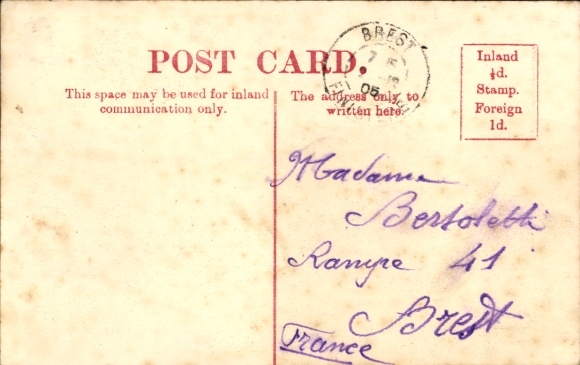 POST CARD.
This space may be used for inland
communication only.
The address only to
written here.
Inland
½d.
Stamp.
Foreign
1d.
BREST
05
Madame
Bertoletti
Rampe 41
Brest
France